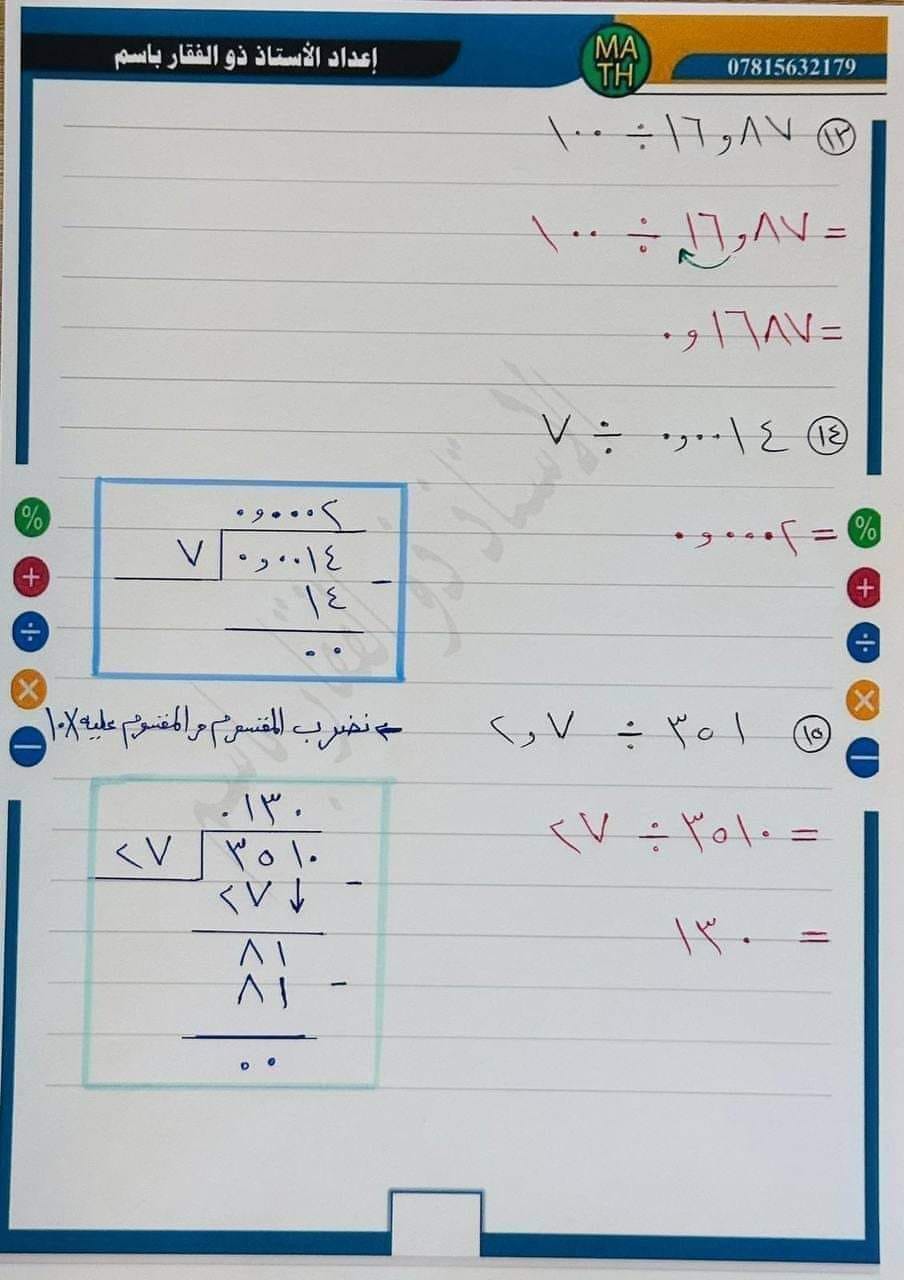 إعداد الأستاذ ذو الفقار باسم
MA
TH
07815632179
١٣ ١٦,٨٧ ÷ ١٠٠
= ١٦,٨٧ ÷ ١٠٠
= ٠,١٦٨٧
١٤ ٠,٠٠١٤ ÷ ٧
= ٠,٠٠٠٢
٠,٠٠٠٢
٧ ٠,٠٠١٤
- ١٤
٠٠
١٥ ٣٥١ ÷ ٢,٧ ← نضرب المقسوم والمقسوم عليه ×١٠
= ٣٥١٠ ÷ ٢٧
= ١٣٠
٠١٣٠
٢٧ ٣٥١٠
- ٢٧ ↓
٨١
- ٨١
٠٠
الاستاذ ذو الفقار باسم
% %
+ +
÷ ÷
× ×
− −